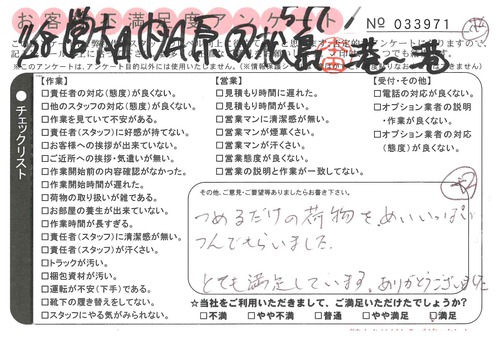 お客様不満足度アンケート
No 033971
※このアンケートは、アンケート目的以外には使用いたしません。
チェックリスト
【作業】
□責任者の対応(態度)が良くない。
□他のスタッフの対応(態度)が良くない。
□作業を見ていて不安がある。
□責任者(スタッフ)に好感が持てない。
□お客様への挨拶が出来ていない。
□ご近所への挨拶・気遣いが無い。
□作業開始前の内容確認がなかった。
□作業開始時間が遅れた。
□荷物の取り扱いが雑である。
□お部屋の養生が出来ていない。
□作業時間が長すぎる。
□責任者(スタッフ)に清潔感が無い。
□責任者(スタッフ)が汗くさい。
□トラックが汚い。
□梱包資材が汚い。
□運転が不安(下手)である。
□靴下の履き替えをしてない。
□スタッフにやる気がみられない。
【営業】
□見積もり時間に遅れた。
□見積もり時間が長い。
□営業マンに清潔感が無い。
□営業マンが煙草くさい。
□営業マンが汗くさい。
□営業態度が良くない。
□営業の説明と作業が一致してない。
【受付・その他】
□電話の対応が良くない。
□オプション業者の説明
・作業が良くない。
□オプション業者の対応
(態度)が良くない。
その他、ご意見・ご要望等ありましたらお書き下さい。
つめるだけの荷物を、めいいっぱい
つんでもらいました。
とても満足しています。ありがとうございました
☆当社をご利用いただきまして、ご満足いただけたでしょうか?
□不満 □やや不満 □普通 □やや満足 □満足